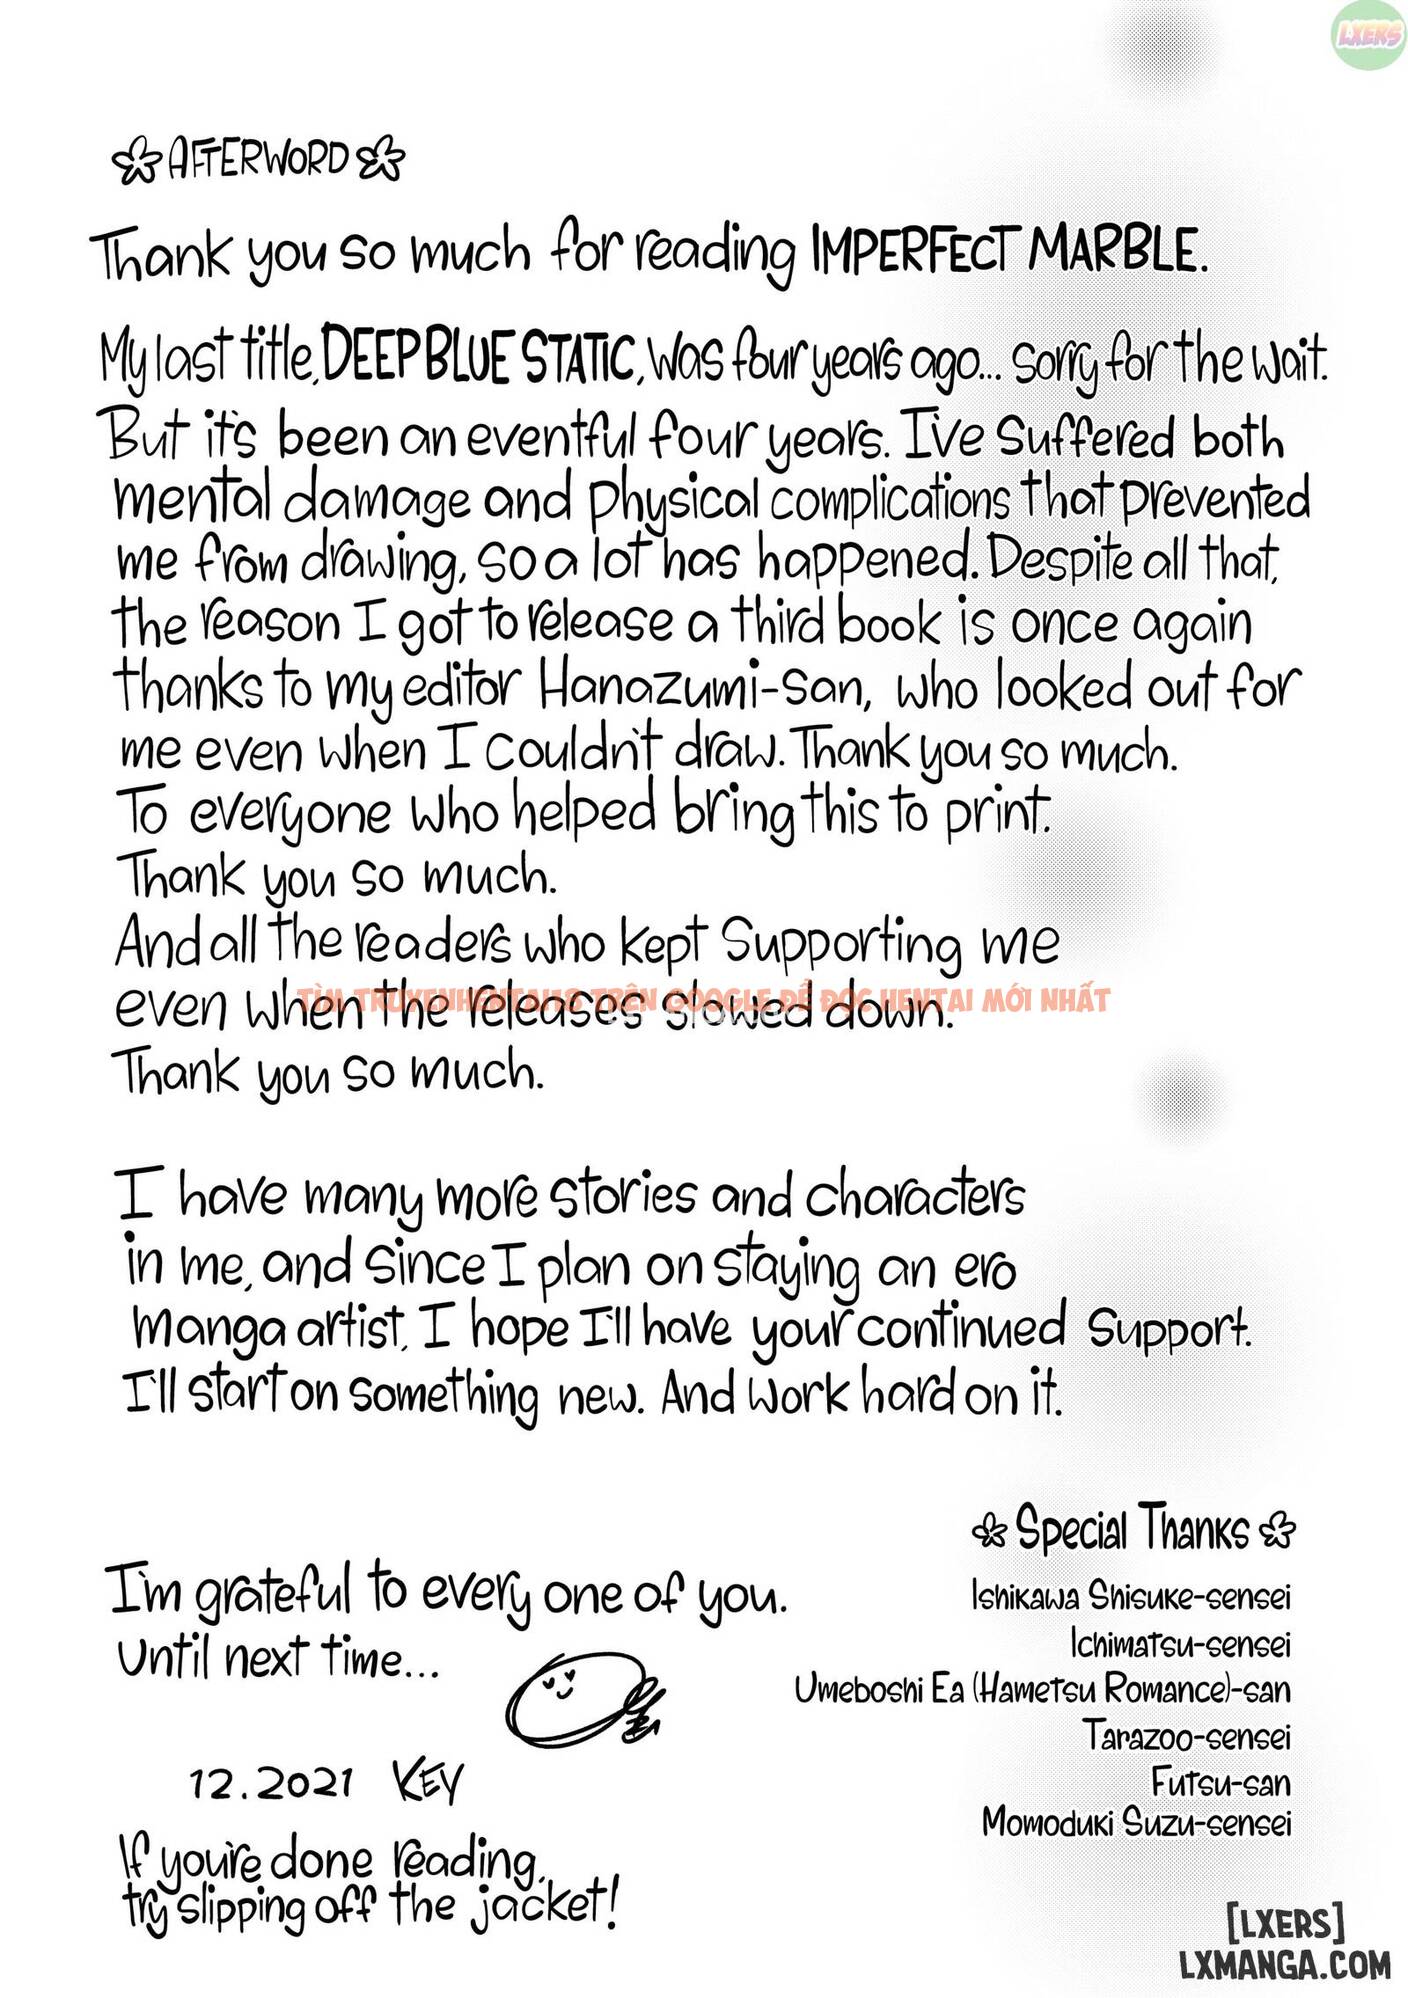 LXERS
AFTERWORD
Thank you so much for reading IMPERFECT MARBLE.
My last title, DEEP BLUE STATIC, was four years ago... Sorry for the wait.
But it's been an eventful four years. I've suffered both
mental damage and physical complications that prevented
me from drawing, so a lot has happened. Despite all that,
the reason I got to release a third book is once again
thanks to my editor Hanazumi-san, who looked out for
me even when I couldn't draw. Thank you so much.
To everyone who helped bring this to print.
Thank you so much.
And all the readers who kept supporting me
even when the releases slowed down.
TÌM TRUYENHENTAI18 TRÊN GOOGLE ĐỂ ĐỌC HENTAI MỚI NHẤT
Thank you so much.
I have many more stories and characters
in me, and since I plan on staying an ero
manga artist, I hope I'll have your continued support.
I'll start on something new. And work hard on it.
I'm grateful to every one of you.
Until next time...
12.2021 KEY
If you're done reading,
try slipping off the jacket!
Special Thanks
Ishikawa Shisuke-sensei
Ichimatsu-sensei
Umeboshi Ea (Hametsu Romance)-san
Tarazoo-sensei
Futsu-san
Momoduki Suzu-sensei
[LXERS]
LXMANGA.COM